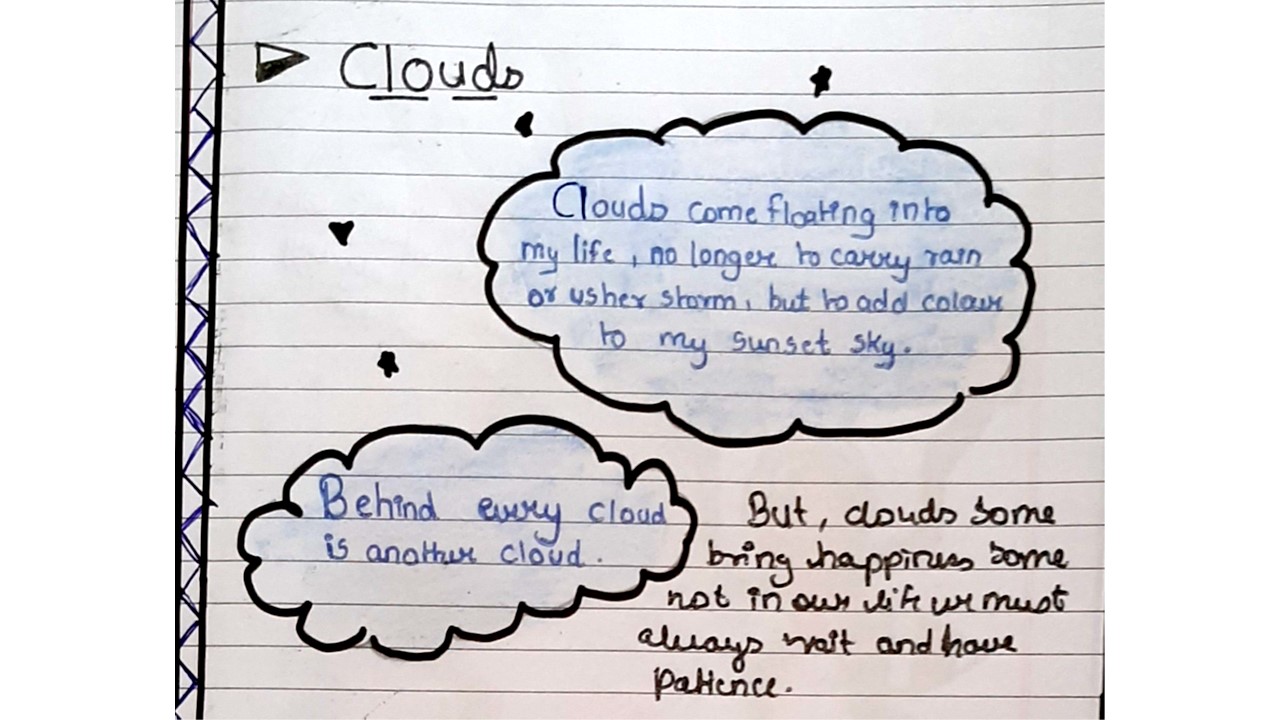 Clouds
Clouds come floating into
my life, no longer to carry rain
or usher storm, but to add colour
to my sunset sky.
Behind every cloud
is another cloud.
But, clouds some
bring happiness some
not in our life we must
always wait and have
patience.